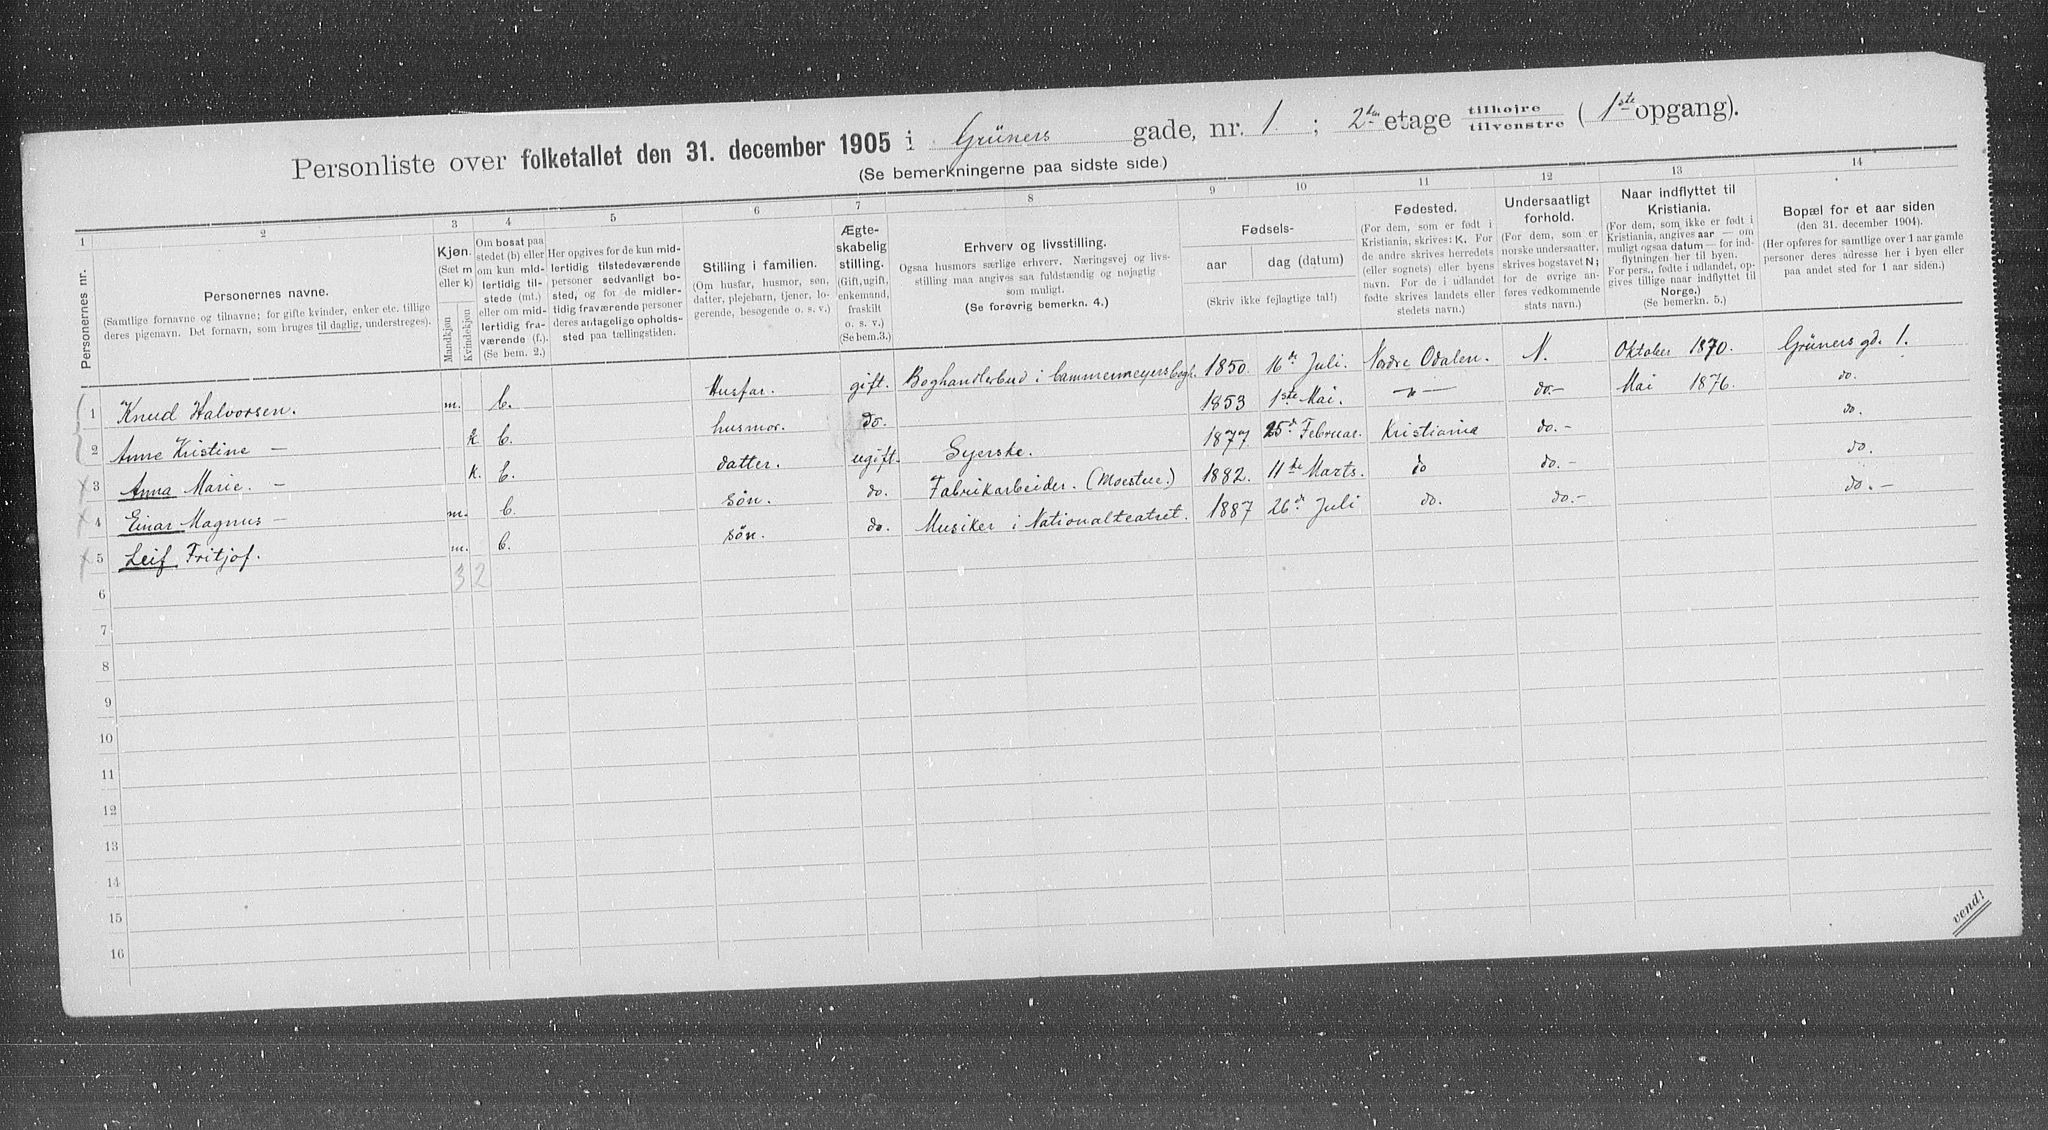 Personliste over folketallet den 31. december 1905 i Grüners gade, nr. 1. ; 2den etage tilhøjre tilvenstre (1ste opgang).
(Se bemerkningerne paa sidste side.)
1 2 3 4 5 6 7 8 9 10 11 12 13 14
Personernes nr.
Personernes navne.
(Samtlige fornavne og tilnavne; for gifte kvinder, enker etc. tillige
deres pigenavn. Det fornavn, som bruges til daglig, understreges).
Kjøn.
(Sæt m
eller k)
Mandkjøn
Kvindekjøn
Om bosat paa
stedet (b) eller
om kun mid-
lertidig til-
stede (mt.)
eller om mid-
lertidig fra-
værende (f.).
(Se bem. 2.)
Her opgives for de kun mid-
lertidig tilstedeværende
personer sedvanligt bo-
sted, og for de midler-
tidig fraværende personer
deres antagelige opholds-
sted paa tællingstiden.
Stilling i familien.
(Om husfar, husmor, søn,
datter, plejebarn, tjener, lo-
gerende, besøgende o. s. v.)
Ægte-
skabelig
stilling.
(Gift, ugift,
enkemand,
fraskilt
o. s. v.)
(Se bem. 3.)
Erhverv og livsstilling.
Ogsaa husmors særlige erhverv. Næringsvej og livs-
stilling maa angives saa fuldstændig og nøjagtig
som muligt.
(Se forøvrig bemerkn. 4.)
Fødsels-
aar
dag (datum)
(Skriv ikke fejlagtige tal!)
Fødested.
(For dem, som er født i
Kristiania, skrives: K. For
de andre skrives herredets
(eller sognets) eller byens
navn. For de i udlandet
fødte skrives landets eller
stedets navn.)
Undersaatligt
forhold.
(For dem, som er
norske undersaatter,
skrives bogstavet N;
for de øvrige an-
føres vedkommende
stats navn.)
Naar indflyttet til
Kristiania.
(For dem, som ikke er født i
Kristiania, angives aar — om
muligt ogsaa datum — for ind-
flytningen her til byen.
For pers., fødte i udlandet, op-
gives tillige naar indflyttet til
Norge.)
(Se bemerkn. 5.)
Bopæl for et aar siden
(den 31. december 1904).
(Her opføres for samtlige over 1 aar gamle
personer deres adresse her i byen eller
paa andet sted for 1 aar siden.)
1 Knud Halvorsen. m. b. Husfar. gift. Boghandlerbud i Cammermeyers bogh. 1850. 16de Juli. Nordre Odalen. N. Oktober 1870. Grüners gd. 1.
2 Anne Kristine — k b. husmor. do. 1853 1ste Mai. — " — do.- Mai 1876. do.
3 Anna Marie. — k. b. datter. ugift. Syerske. 1877 25d Februar. Kristiania do. - do.
4 Einar Magnus — m. b. søn. do. Fabrikarbeider. (Moestue.) 1882. 11te Marts. do do. - do.
5 Leif Fritjof. m. b. søn. do. Musiker i Nationalteatret. 1887 26d Juli do. do.- do. -
3 2
6
7
8
9
10
11
12
13
14
15
16
vend!